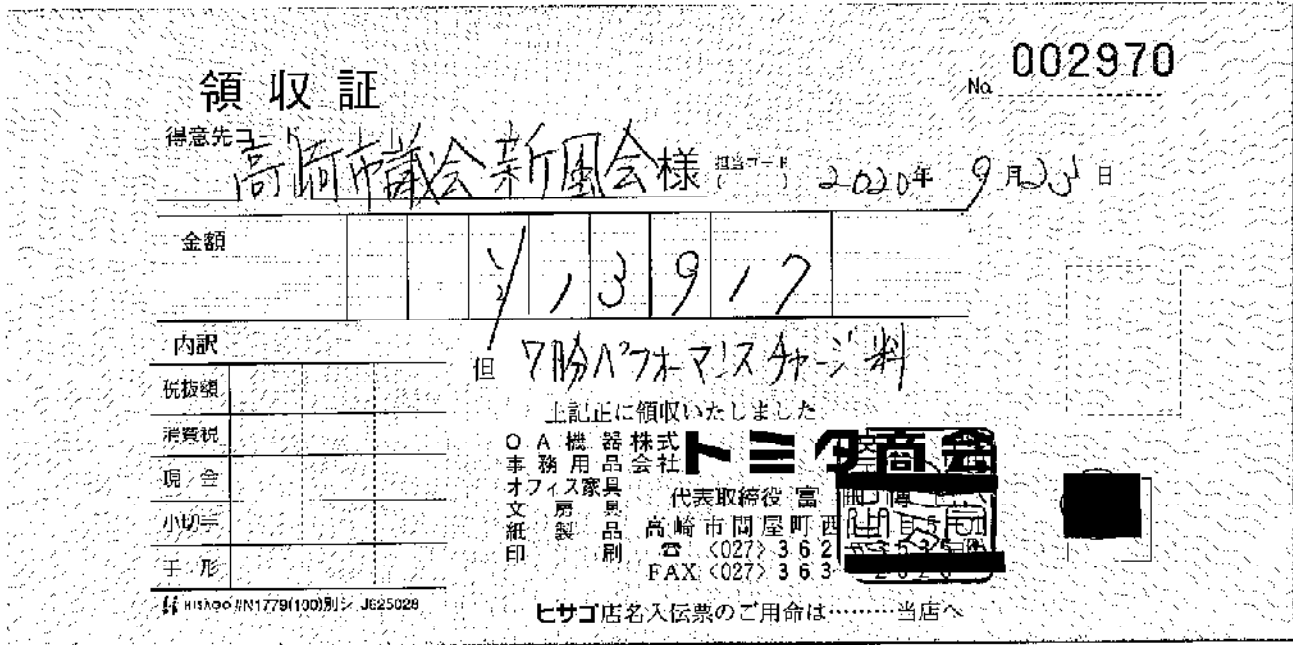 No. 002970
領収証
得意先コード
高崎市議会新風会様 担当コード ( ) 2020年 9月25日
金額 ¥13917
内訳
但 7月分パフォーマンスチャージ料
税抜額
上記正に領収いたしました
消費税
現金
小切手
手形
OA機器
事務用品
オフィス家具
文房具
紙製品
印刷
株式会社トミタ商会
代表取締役 富
高崎市問屋町西
☎ 〈027〉362
FAX 〈027〉363
HISAGO #N1779(100)別シ J625028
ヒサゴ店名入伝票のご用命は………当店へ